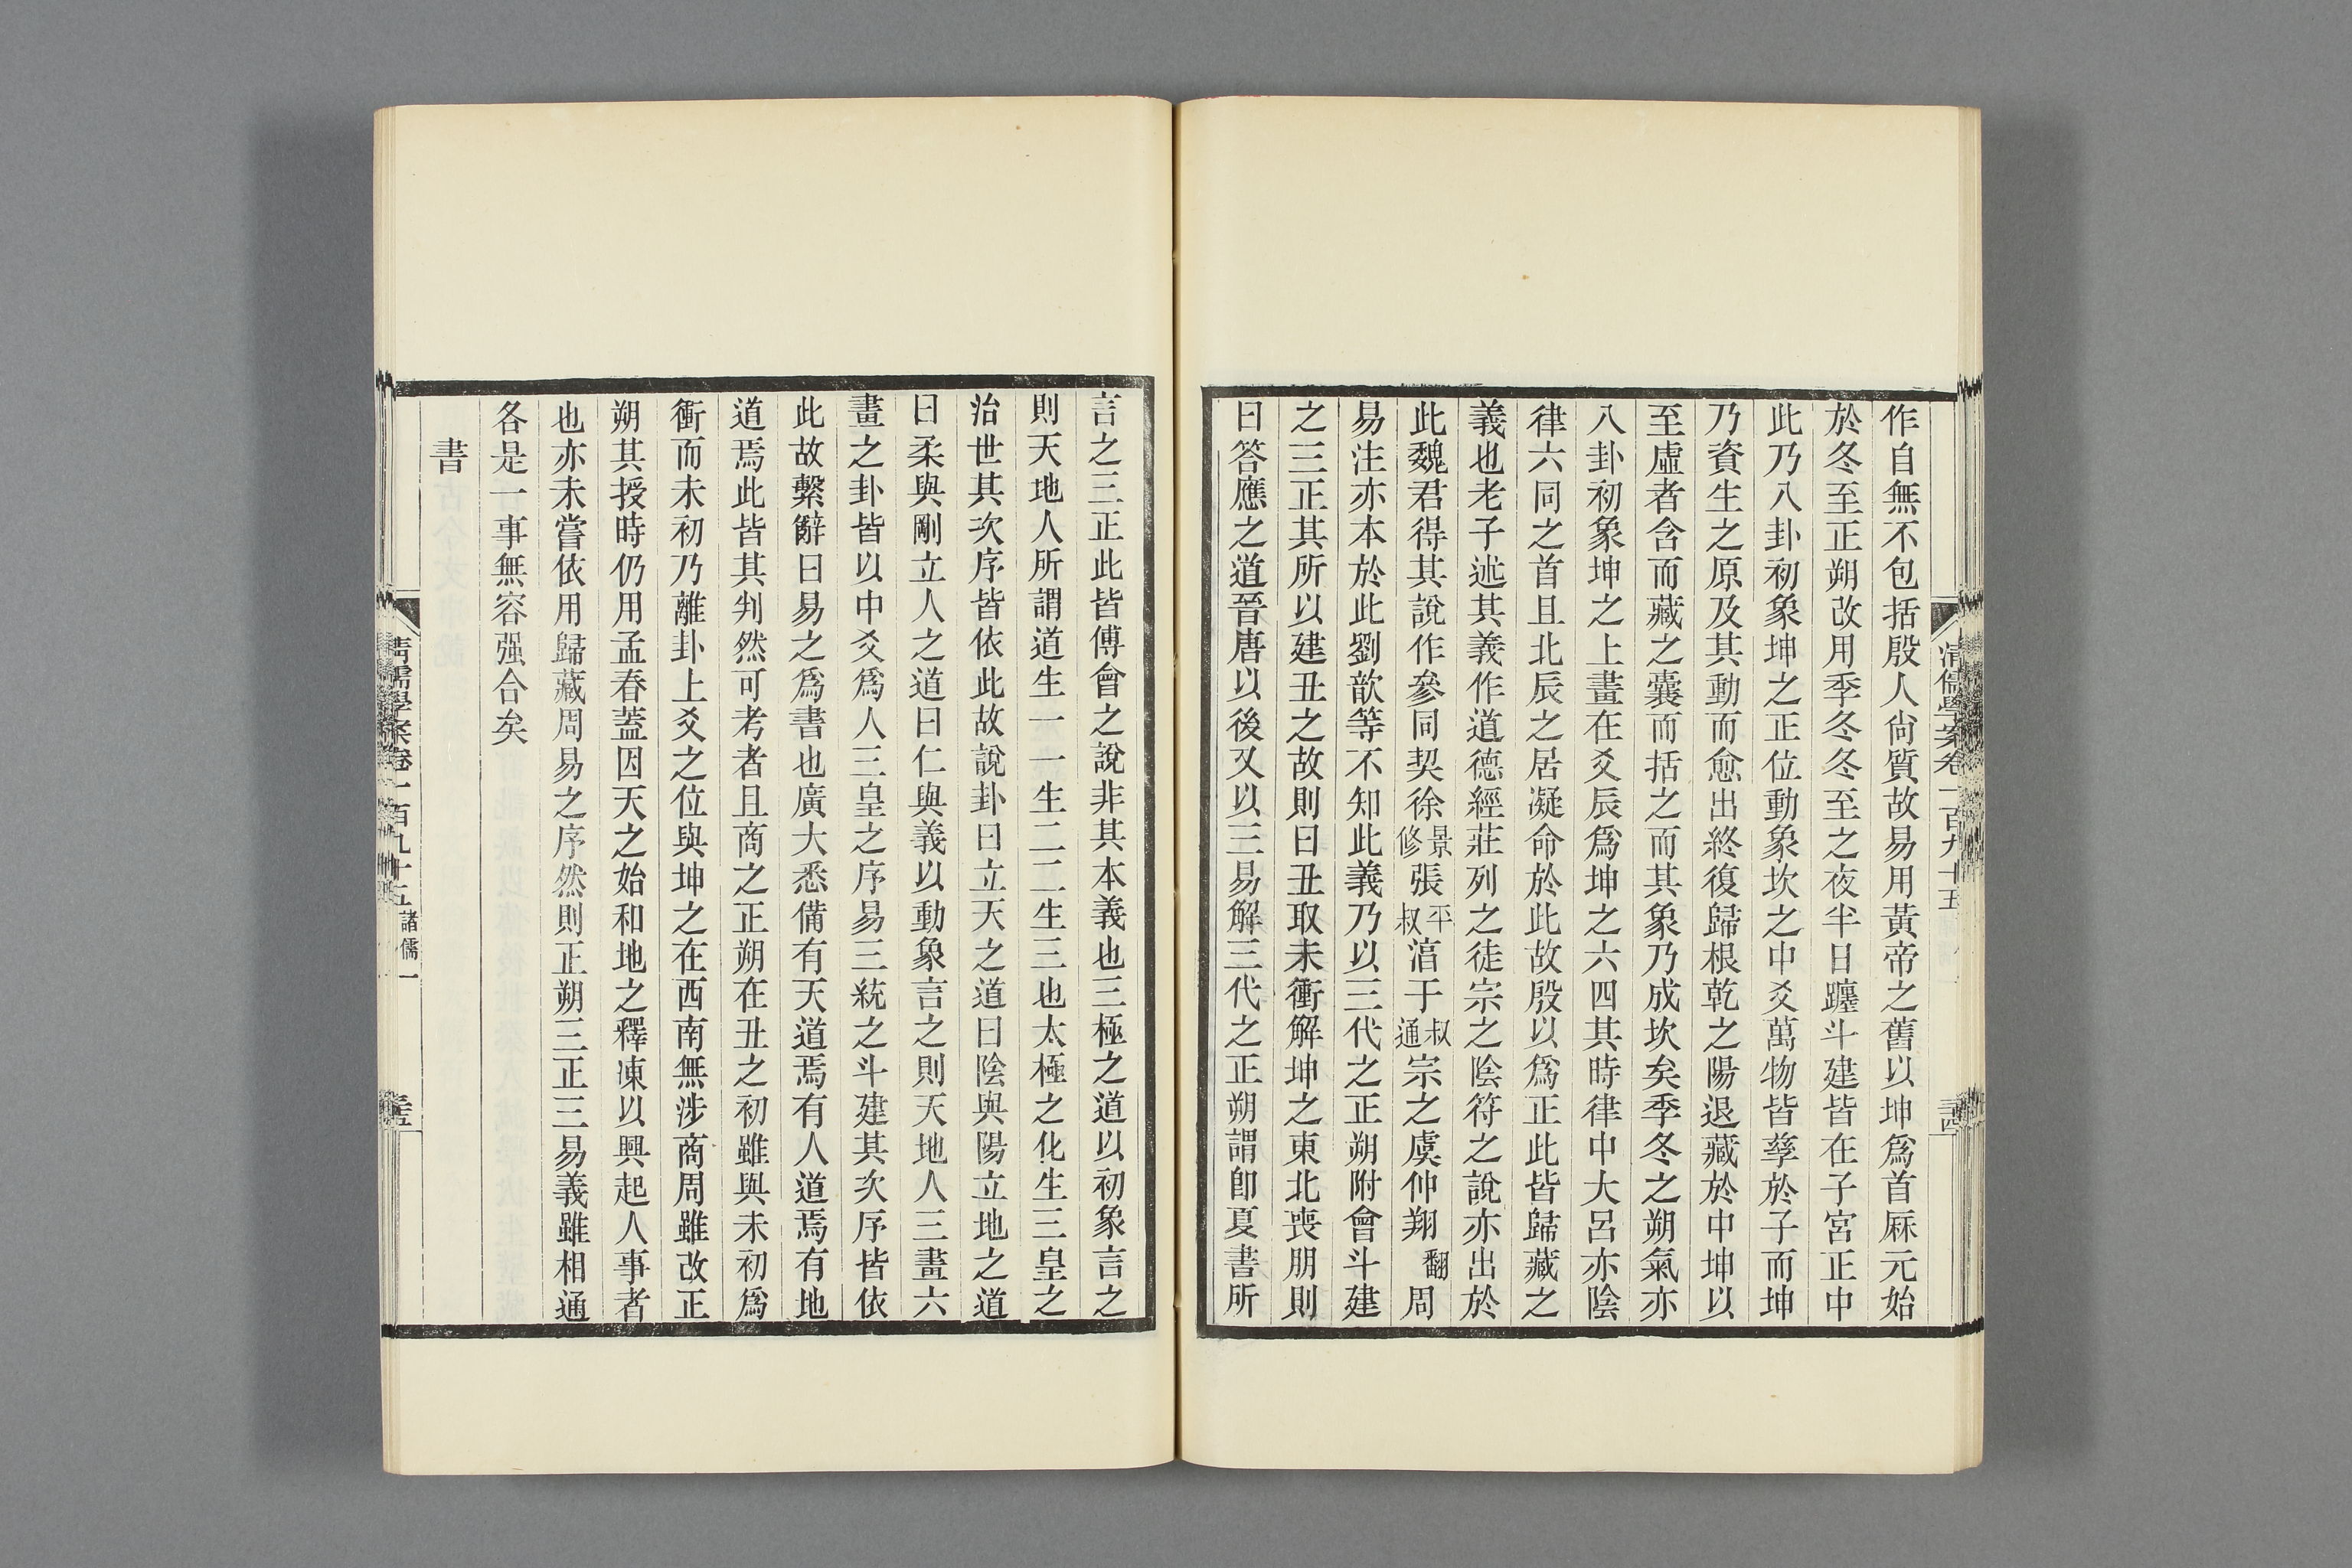 作自無不包括殷人尙質故易用黃帝之舊以坤爲首厤元始
於冬至正朔改用季冬冬至之夜半日躔斗建皆在子宮正中
此乃八卦初象坤之正位動象坎之中爻萬物皆孳於子而坤
乃資生之原及其動而愈出終復歸根乾之陽退藏於中坤以
至虛者含而藏之囊而括之而其象乃成坎矣季冬之朔氣亦
八卦初象坤之上畫在爻辰爲坤之六四其時律中大呂亦陰
律六同之首且北辰之居凝命於此故殷以爲正此皆歸藏之
義也老子述其義作道德經莊列之徒宗之陰符之說亦出於
此魏君得其說作參同契徐景修張平叔湻于叔通宗之虞仲翔翻周
易注亦本於此劉歆等不知此義乃以三代之正朔附會斗建
之三正其所以建丑之故則曰丑取未衝解坤之東北喪朋則
曰答應之道晉唐以後又以三易解三代之正朔謂卽夏書所
清儒學案卷一百九十五
三四
言之三正此皆傅會之說非其本義也三極之道以初象言之
則天地人所謂道生一一生二二生三也太極之化生三皇之
治世其次序皆依此故說卦曰立天之道曰陰與陽立地之道
曰柔與剛立人之道曰仁與義以動象言之則天地人三畫六
畫之卦皆以中爻爲人三皇之序易三統之斗建其次序皆依
此故繫辭曰易之爲書也廣大悉備有天道焉有人道焉有地
道焉此皆其判然可考者且商之正朔在丑之初雖與未初爲
衝而未初乃離卦上爻之位與坤之在西南無涉商周雖改正
朔其授時仍用孟春蓋因天之始和地之釋凍以興起人事者
也亦未嘗依用歸藏周易之序然則正朔三正三易義雖相通
各是一事無容强合矣
書
清儒學案卷一百九十五 諸儒一
三五